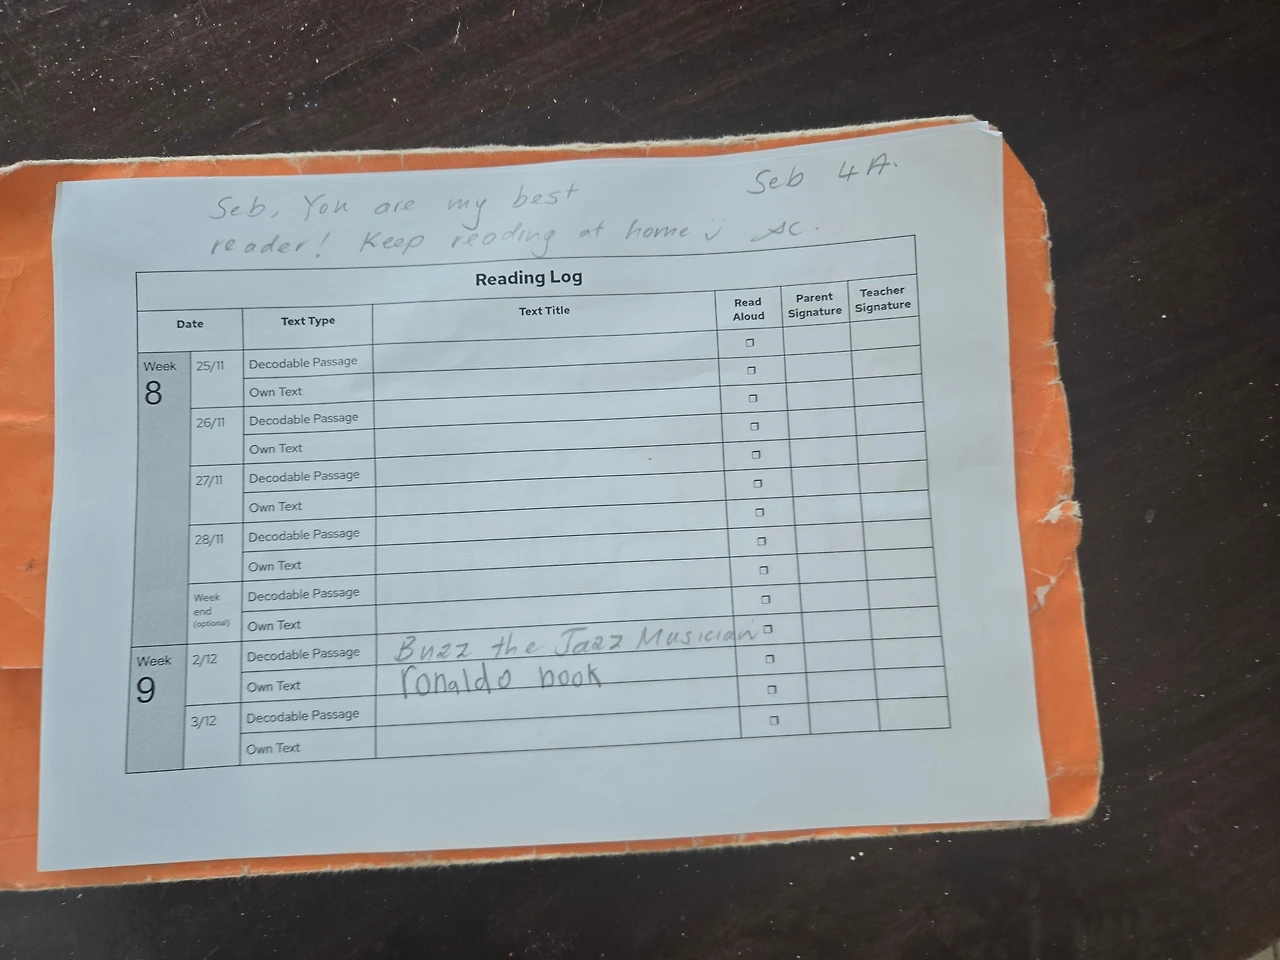 Seb 4A.
Seb, You are my best
reader! Keep reading at home
Reading Log
Date Text Type Text Title Read Aloud Parent Signature Teacher Signature
Week 8 25/11 Decodable Passage
Own Text
26/11 Decodable Passage
Own Text
27/11 Decodable Passage
Own Text
28/11 Decodable Passage
Own Text
Week end (optional) Decodable Passage
Own Text
Week 9 2/12 Decodable Passage Buzz the Jazz Musician
Own Text ronaldo book
3/12 Decodable Passage
Own Text